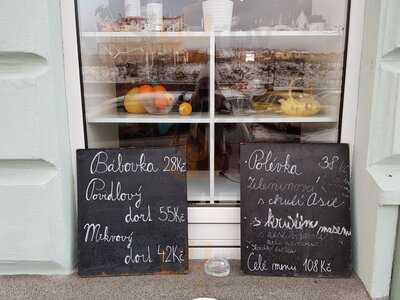 Bábovka 28Kč
Povidlový
dort 55Kč
Mrkvový
dort 42Kč
Polévka 38
Zeleninová
s chutí Asie
s kuřecím masem
Celé menu 108Kč